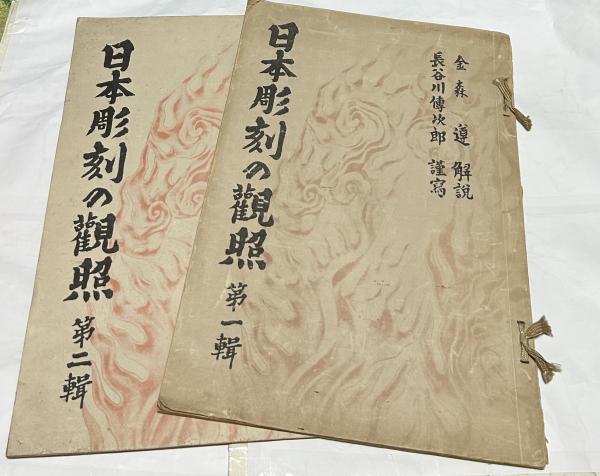 金森遵解説
長谷川傳次郎謹寫
日本彫刻の觀照
第一輯
日本彫刻の觀照
第二輯